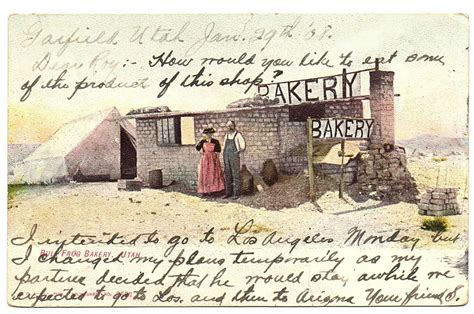 Garfield Utah Jan. 29th '08.
Dear Roy:- How would you like to eat some
of the product of this shop?
BAKERY
BAKERY
BULL FROG BAKERY, UTAH
I intended to go to Los Angeles Monday but
I changed my plans temporarily as my
partner decided that he would stay awhile we
expected to go to Los. and then to Arizona Your friend S.